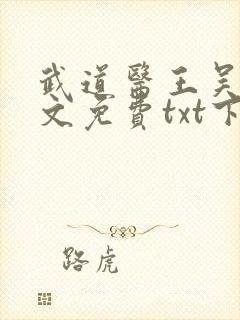 武道醫王吴
文免費txt下
路虎